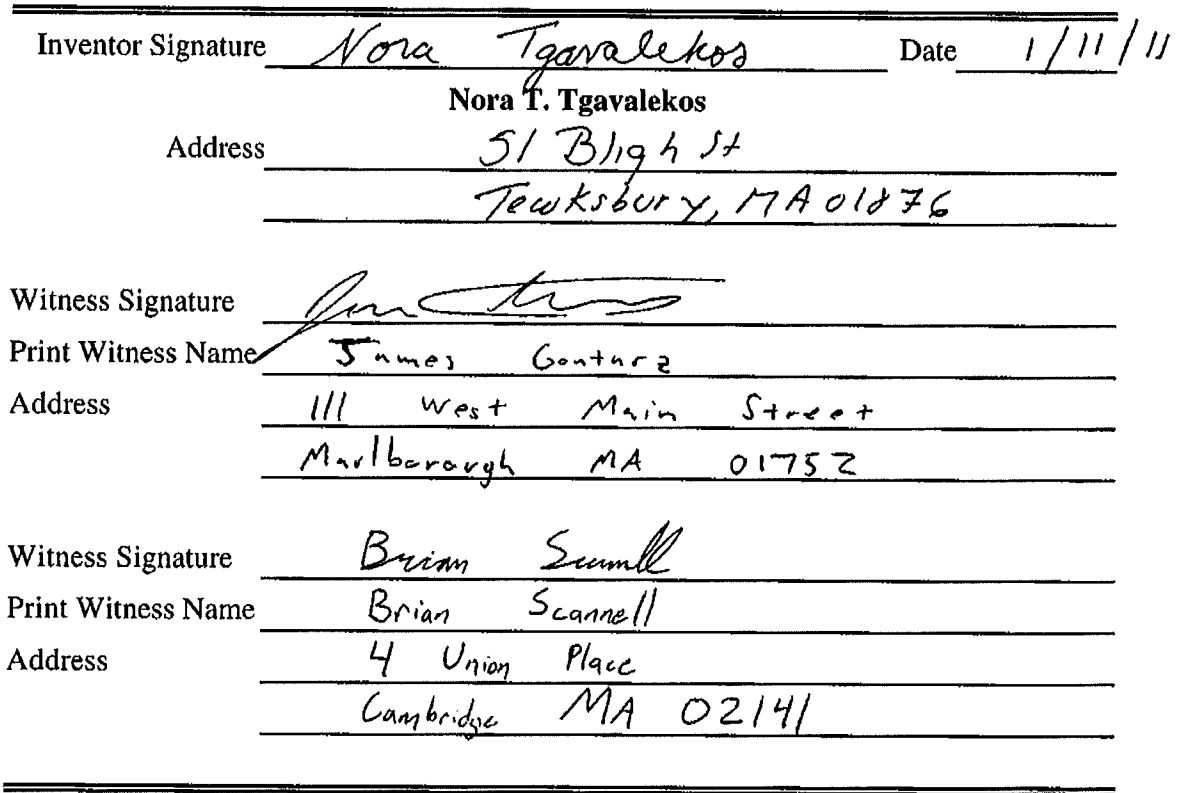 Inventor Signature Nora Tgavalekos Date 1/11/11
Nora T. Tgavalekos
Address 51 Bligh St
Tewksbury, MA 01876
Witness Signature
Print Witness Name James Gonturz
Address 111 West Main Street
Marlborough MA 01752
Witness Signature Brian Scannell
Print Witness Name Brian Scannell
Address 4 Union Place
Cambridge MA 02141